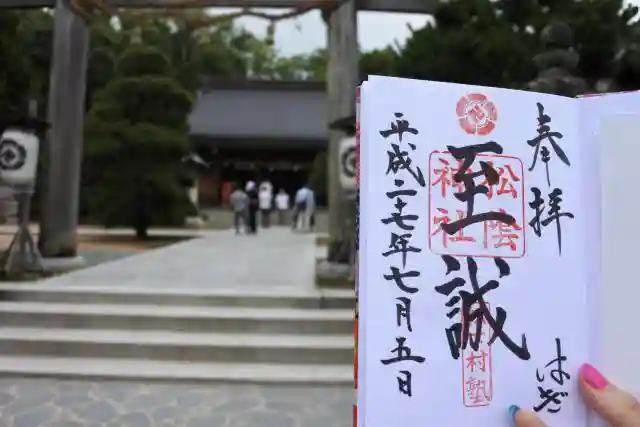 奉拝
松陰
神社
至誠
村塾
はぎ
平成二十七年七月五日